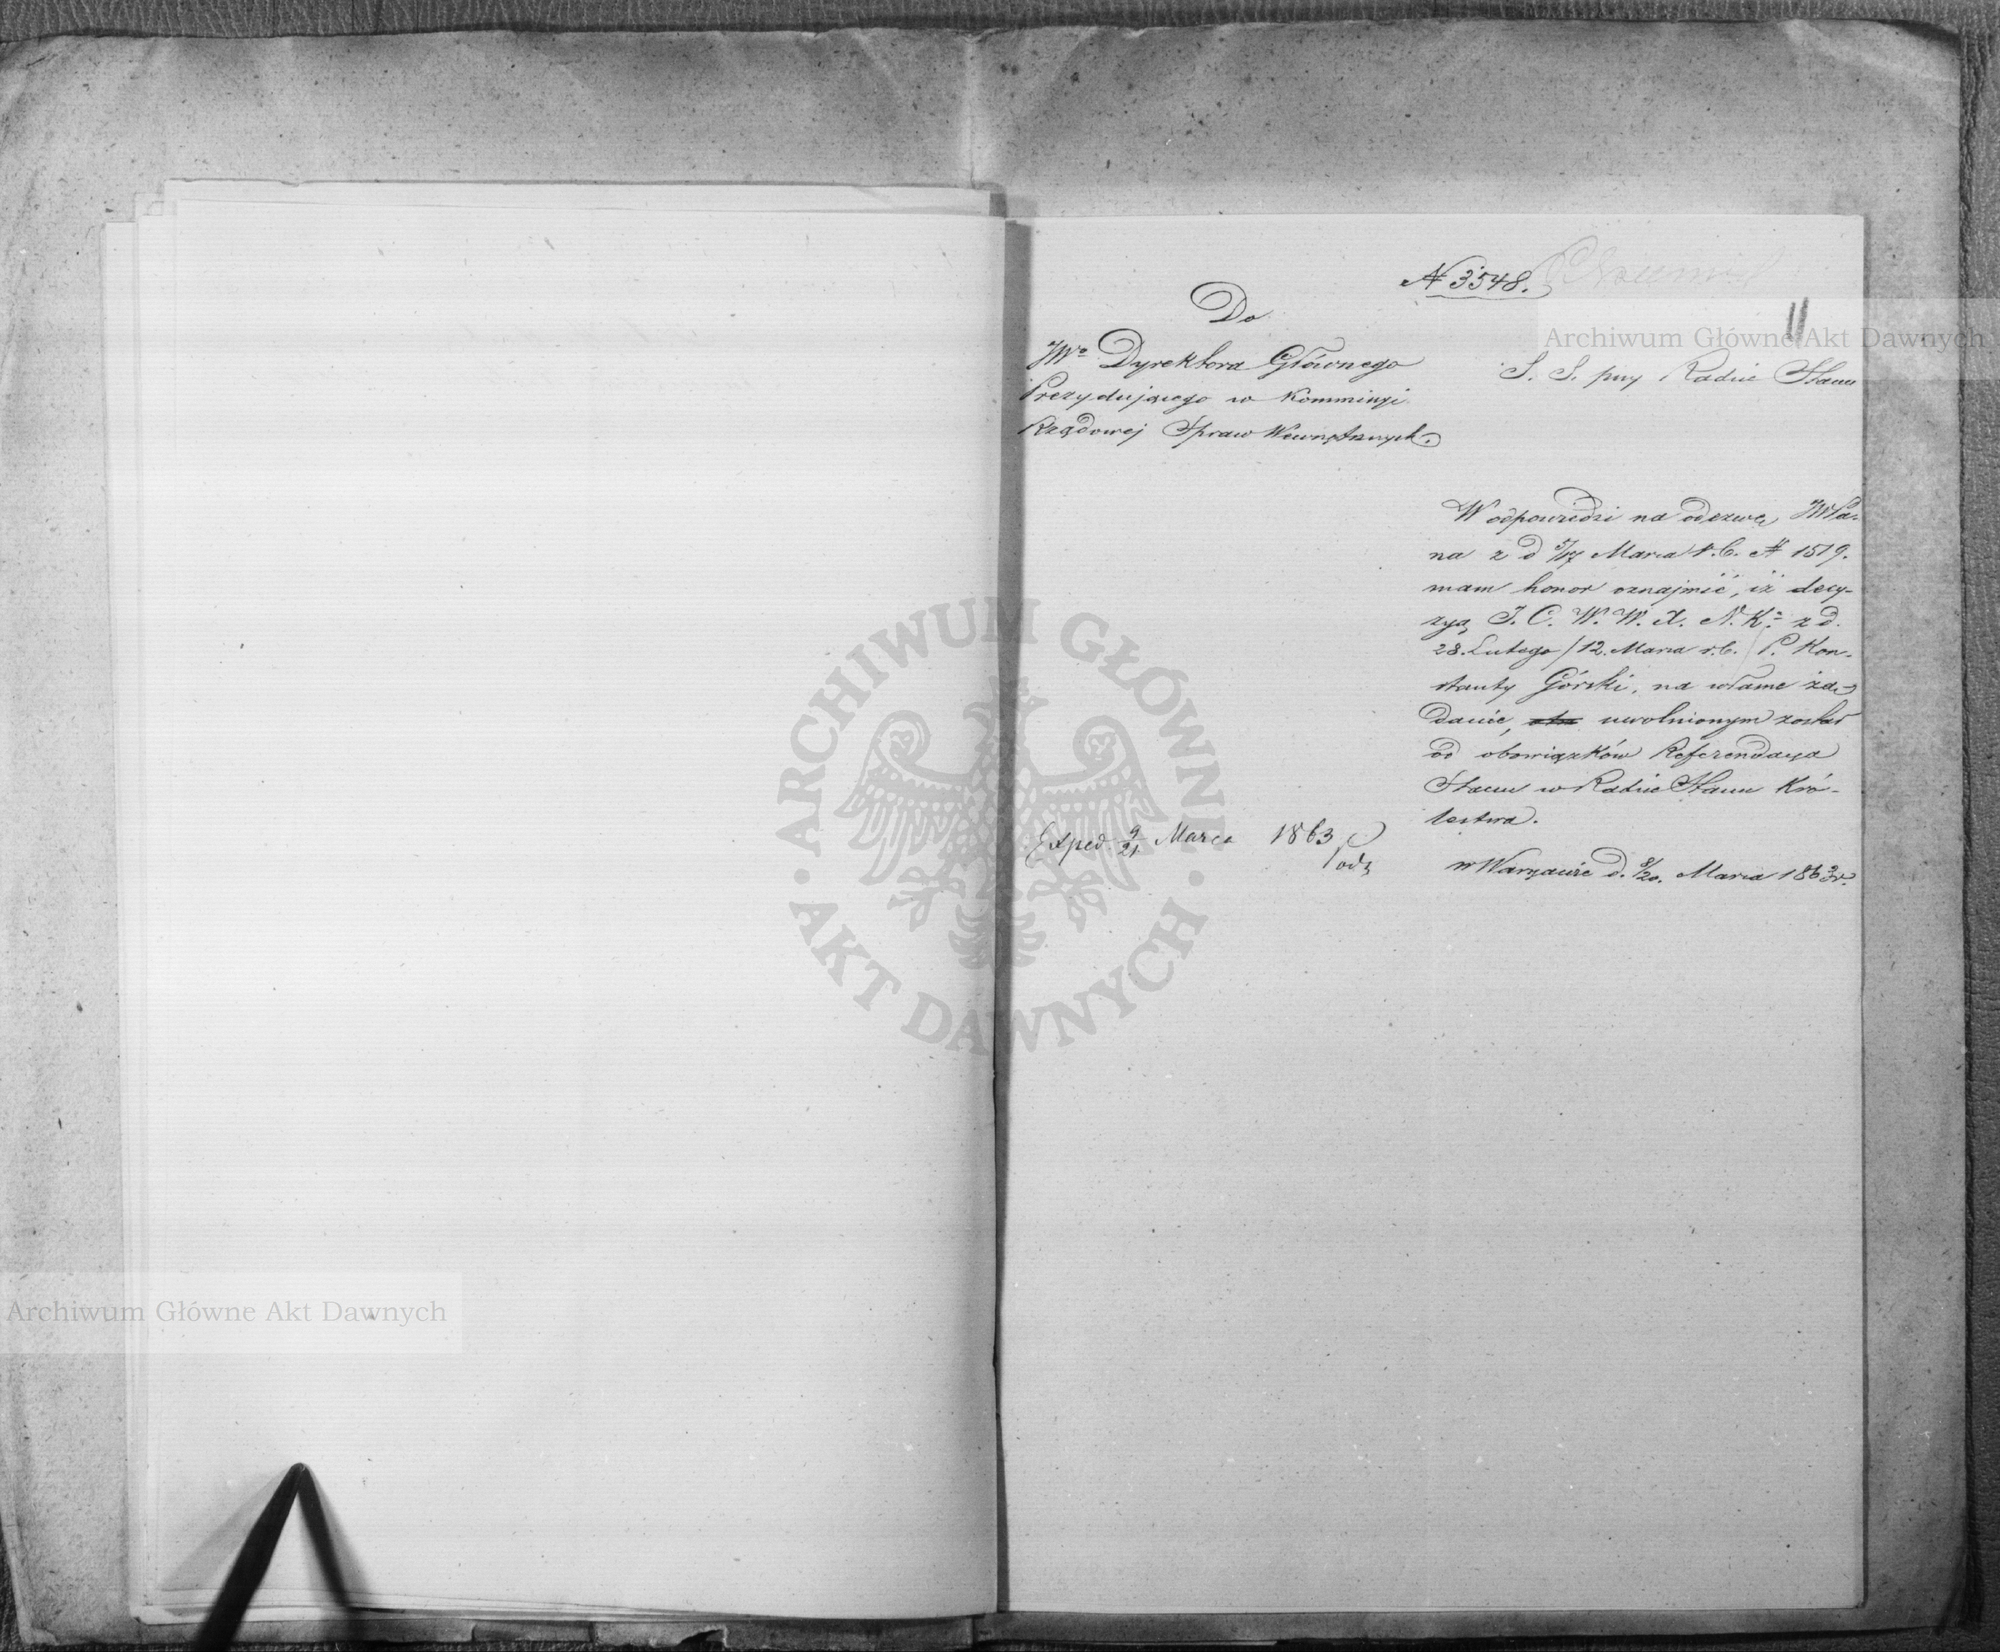 № 3548.
11
Do
JWo Dyrektora Głównego
Prezydującego w Kommissyi
Rządowej Spraw Wewnętrznych.
S. S. przy Radzie Stanu
W odpowiedzi na odezwę JWPa-
na z d 5/17 Marca r. b. № 1519.
mam honor oznajmić, iż decy-
zyą J. C. W. W. X. N. Ka z d.
28. Lutego / 12. Marca r. b. P. Kon-
stanty Górski, na własne żą-
danie, uwolnionym został
od obowiązków Referendarza
Stanu w Radzie Stanu Kró-
lestwa.
w Warszawie d. 8/20. Marca 1863 r.
Exped. 9/21 Marca 1863
ARCHIWUM GŁÓWNE
AKT DAWNYCH
Archiwum Główne Akt Dawnych
Archiwum Główne Akt Dawnych